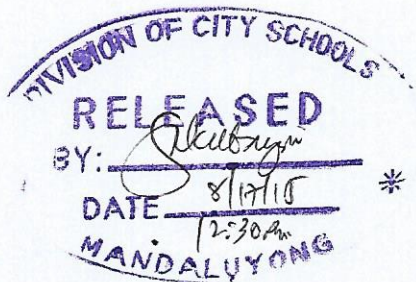 DIVISION OF CITY SCHOOLS
RELEASED
BY:
DATE 8/17/15
12:30 pm
MANDALUYONG
*